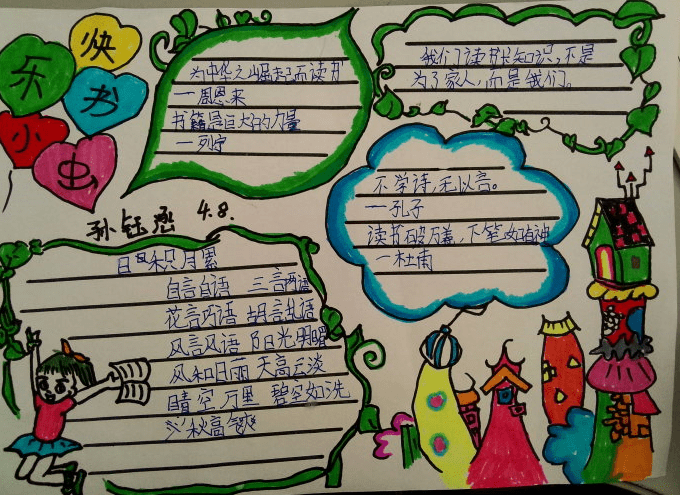 快乐书小虫
为中华之崛起而读书
一周恩来
书籍是巨大的力量
一列宁
我们读书长知识，不是
为了家人，而是我们。
不学诗，无以言。
一孔子
读书破万卷，下笔如有神
一杜甫
孙钰 4.8.
日积月累
自言自语 三言两语
花言巧语 胡言乱语
风言风语 阳光明媚
风和日丽 天高云淡
晴空万里 碧空如洗
秋高气爽